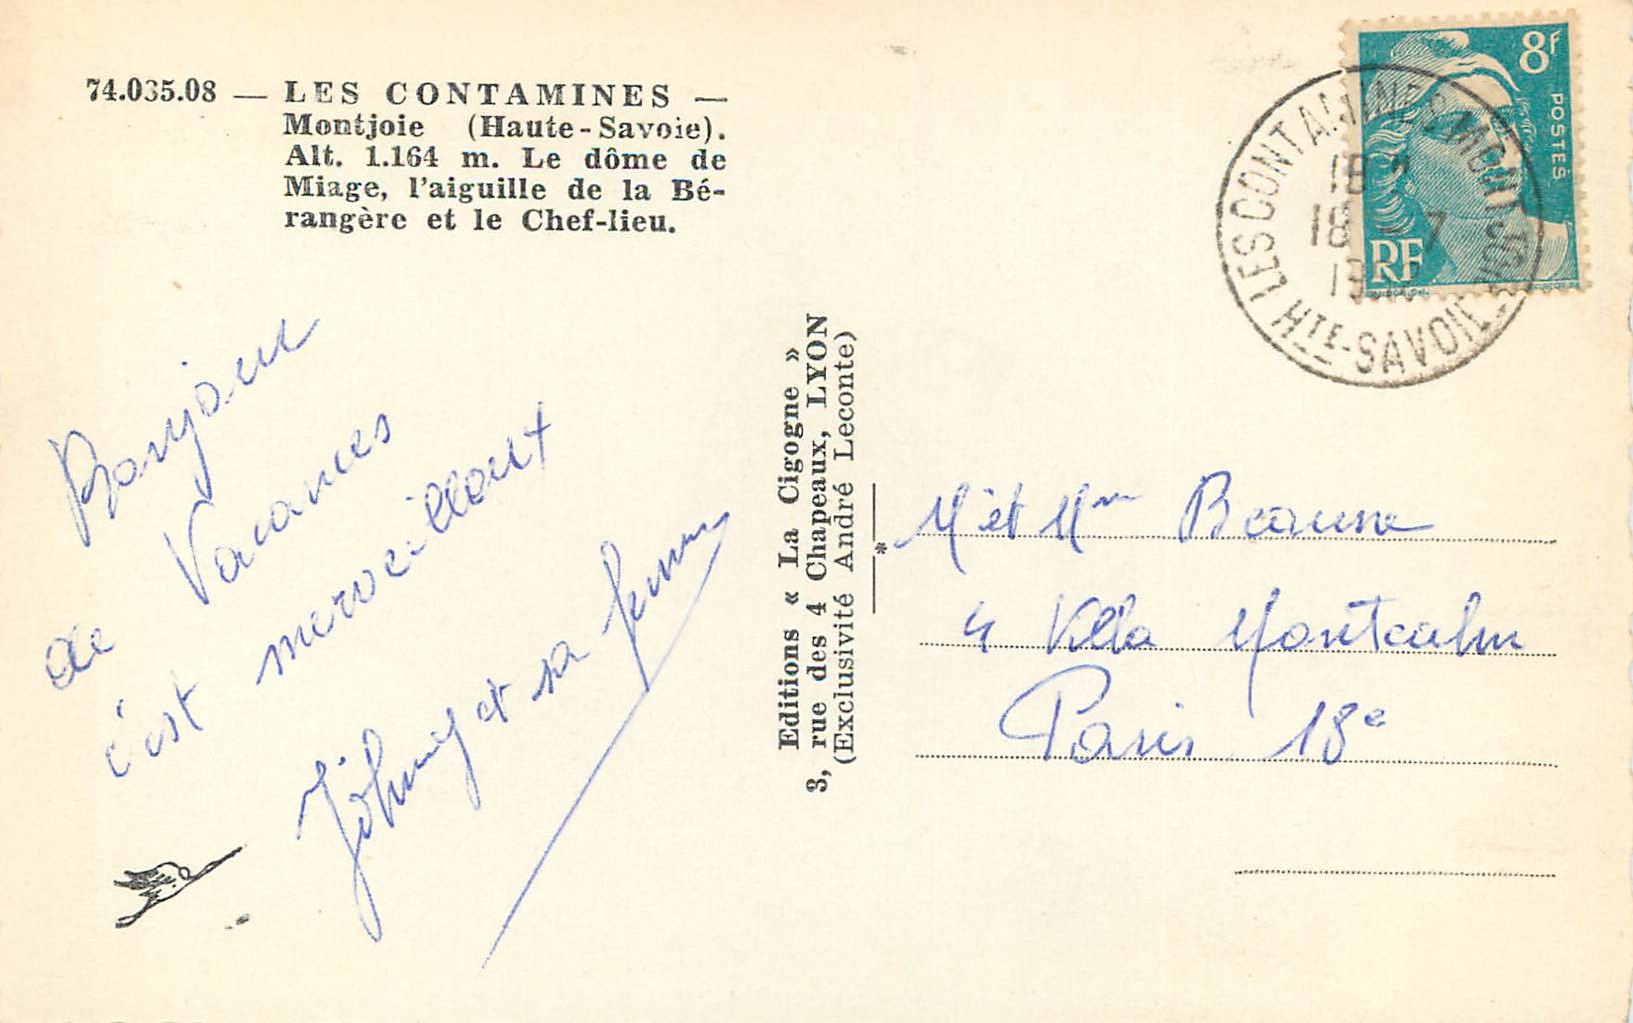 74.035.08 — LES CONTAMINES —
Montjoie (Haute-Savoie).
Alt. 1.164 m. Le dôme de
Miage, l'aiguille de la Bé-
rangère et le Chef-lieu.
Bonjour
de Vacances
c'est merveilleux
Johnny et sa femme
Editions « La Cigogne »
3, rue des 4 Chapeaux, LYON
(Exclusivité André Leconte)
*
8f
POSTES
RF
LES CONTAMINES MONTJOIE
HTE-SAVOIE
18
18 7
M et Mme
4 Villa Montcalm
Paris 18e